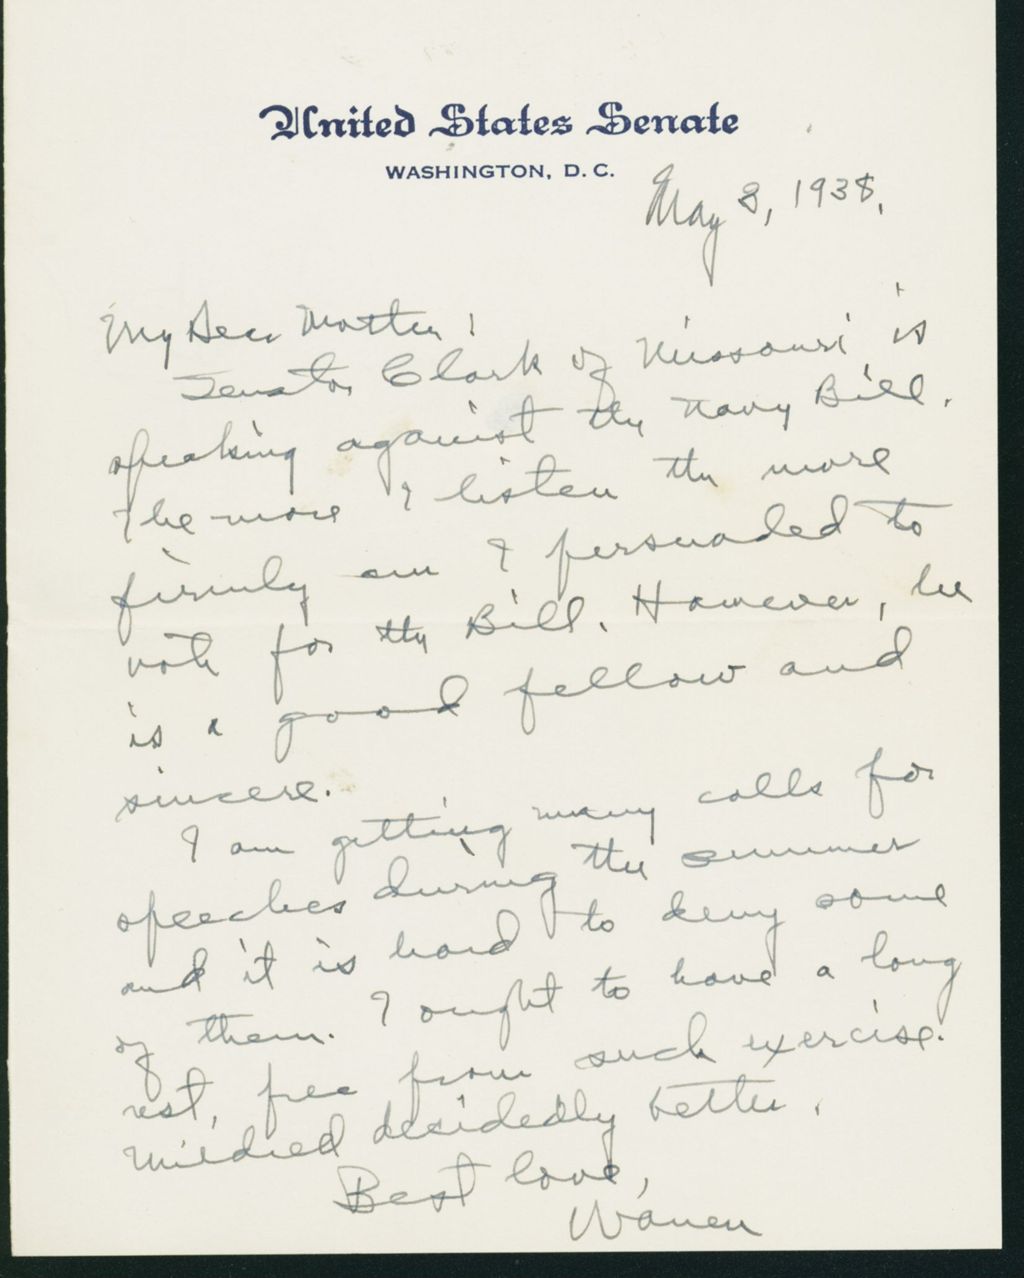 United States Senate
WASHINGTON, D. C.
May 3, 1938.
My Dear Mother!
Senator Clark of Missouri is
speaking against the Navy Bill.
The more I listen the more
firmly am I persuaded to
vote for the Bill. However, he
is a good fellow and
sincere.
I am getting many calls for
speeches during the summer
and it is hard to deny some
of them. I ought to have a long
rest, free from such exercise.
Mildred decidedly better.
Best love,
Warren